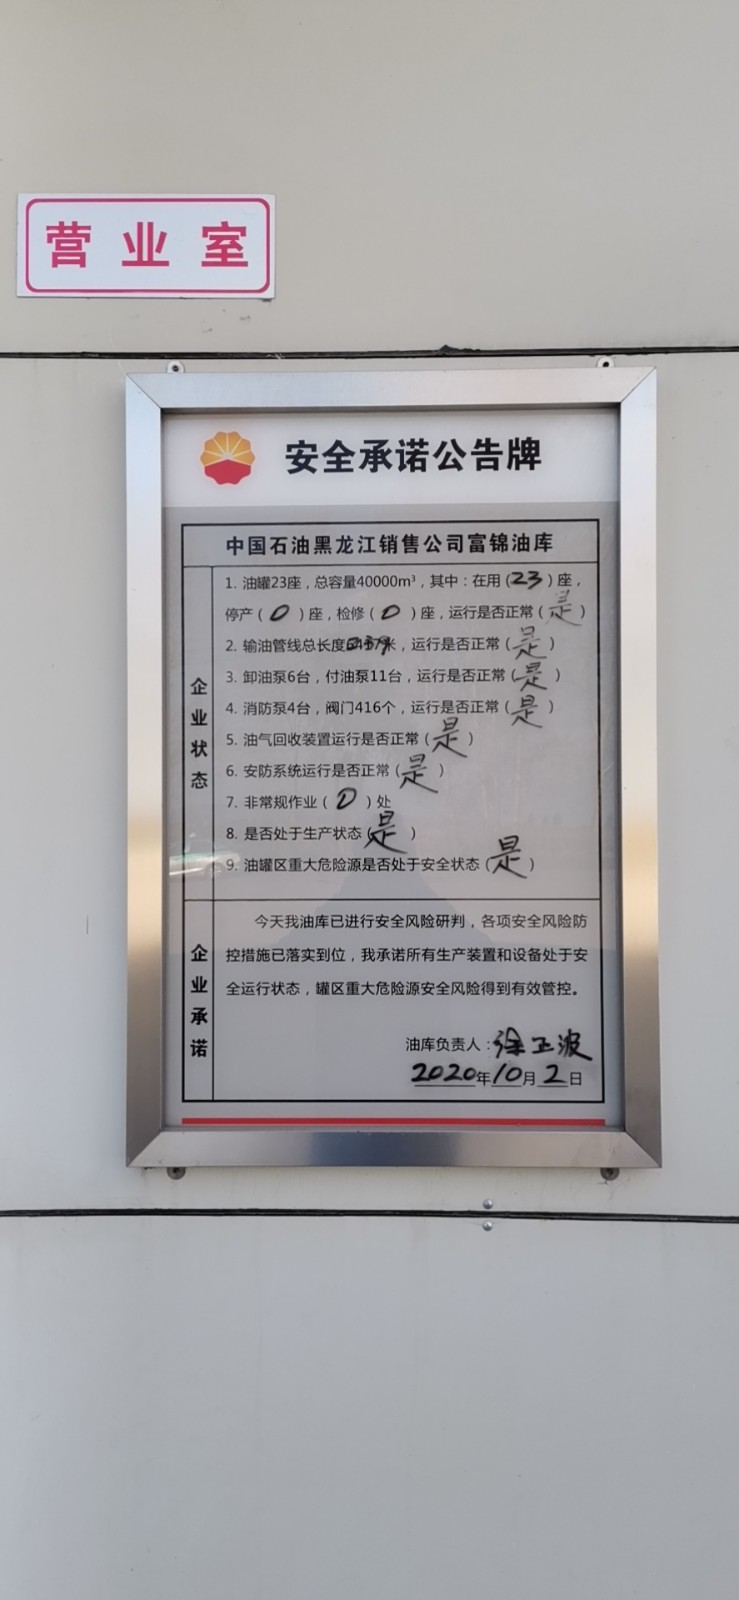 营业室
安全承诺公告牌
中国石油黑龙江销售公司富锦油库
企业状态
1. 油罐23座，总容量40000m³，其中：在用（23）座，
停产（0）座，检修（0）座，运行是否正常（是）
2. 输油管线总长度米，运行是否正常（是）
3. 卸油泵6台，付油泵11台，运行是否正常（是）
4. 消防泵4台，阀门416个，运行是否正常（是）
5. 油气回收装置运行是否正常（是）
6. 安防系统运行是否正常（是）
7. 非常规作业（0）处
8. 是否处于生产状态（是）
9. 油罐区重大危险源是否处于安全状态（是）
企业承诺
今天我油库已进行安全风险研判，各项安全风险防
控措施已落实到位，我承诺所有生产装置和设备处于安
全运行状态，罐区重大危险源安全风险得到有效管控。
油库负责人：徐正波
2020年10月2日